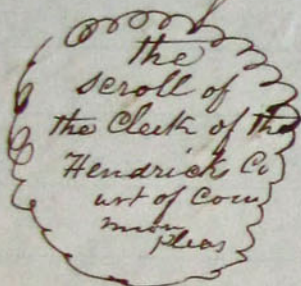 the
scroll of
the Clerk of the
Hendricks Co
urt of Com
mon
pleas